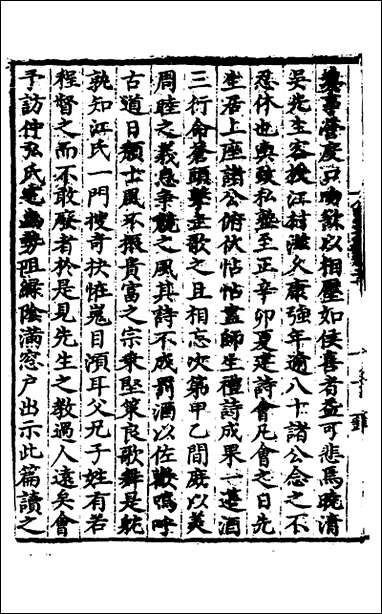 事當度口吻縣以相壓如侯喜者益可悲焉曉清
吳先生客授江村滋久康強年逾八十諸公念之不
忍休也輿致私塾至正辛卯夏建詩會凡會之日先
坐居上座諸公俯伏帖帖盡師生禮詩成果一蓬酒
三行命蒼頭擊壤歌之且相忘次第甲乙間庶以美
周睦之義息爭競之風其詩不成罰酒以佐歡嗚呼
古道日頹士風不振貴富之宗乘堅策良歌舞是躭
孰知江氏一門搜奇抉怪嵬目澒耳父兄子姓有若
程督之而不敢廢者於是見先生之教過人遠矣會
予訪仲弘氏勢阻綠陰滿窓戶出示此篇讀之